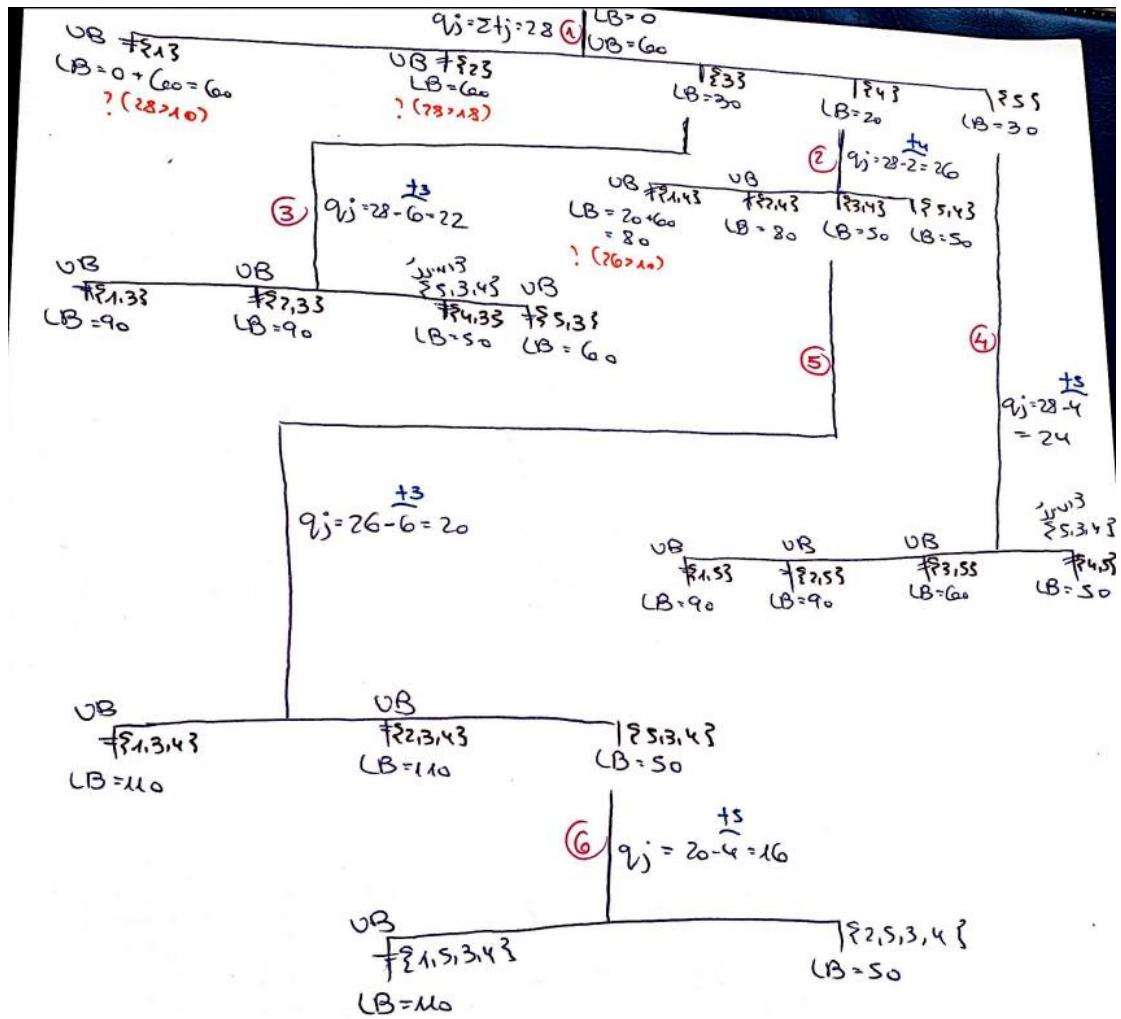 qj=Σtj=28 ① LB=0
UB=60
UB {1}
LB=0+60=60
? (28>10)
UB {2}
LB=60
? (28>18)
{3}
LB=30
{4}
LB=20
{5}
LB=30
② t4
qj=28-2=26
UB {1,4}
LB=20+60
=80
? (26>10)
UB
{2,4}
LB=80
{3,4}
LB=50
{5,4}
LB=50
③ t3
qj=28-6=22
UB
{1,3}
LB=90
UB
{2,3}
LB=90
{5,3,4}
{4,3}
LB=50
UB
{5,3}
LB=60
④ t5
qj=28-4
=24
UB
{1,5}
LB=90
UB
{2,5}
LB=90
UB
{3,5}
LB=60
{5,3,4}
{4,5}
LB=50
⑤
t3
qj=26-6=20
UB
{1,3,4}
LB=110
UB
{2,3,4}
LB=110
{5,3,4}
LB=50
⑥ t5
qj=20-4=16
UB
{1,5,3,4}
LB=110
{2,5,3,4}
LB=50